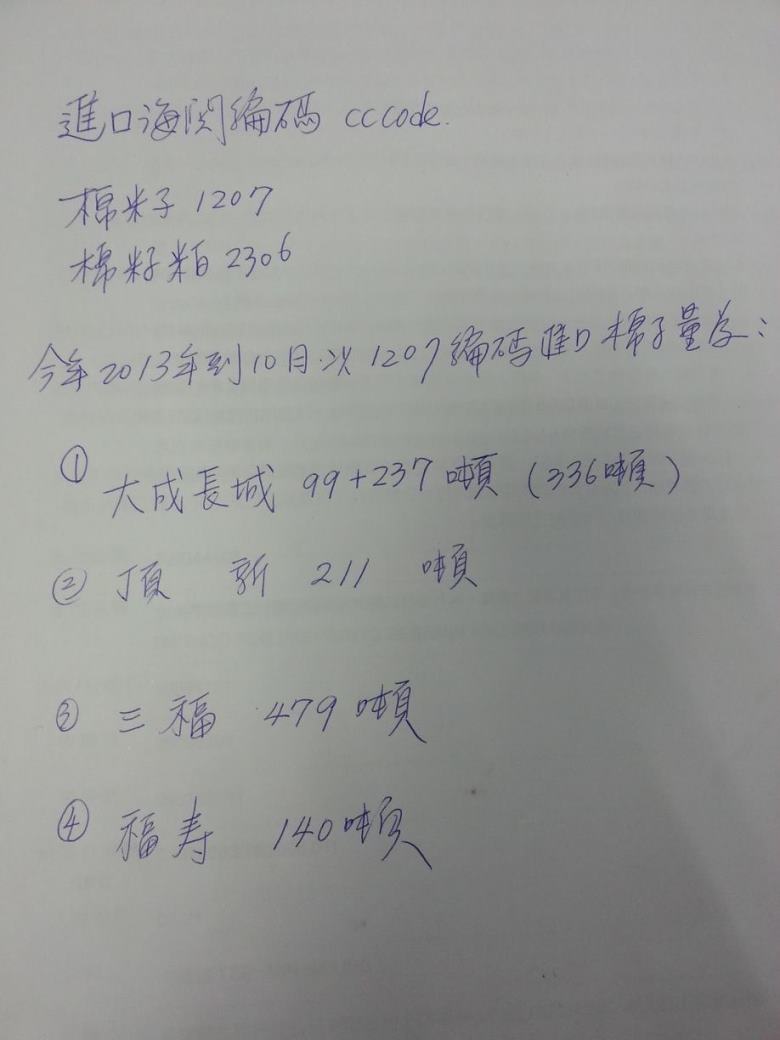 進口海関編碼 cccode.
棉籽子 1207
棉籽粕 2306
今年2013年到10月止以1207編碼進口棉子量為:
① 大成長城 99+237噸 (336噸)
② 頂 新 211 噸
③ 三福 479噸
④ 福寿 140噸